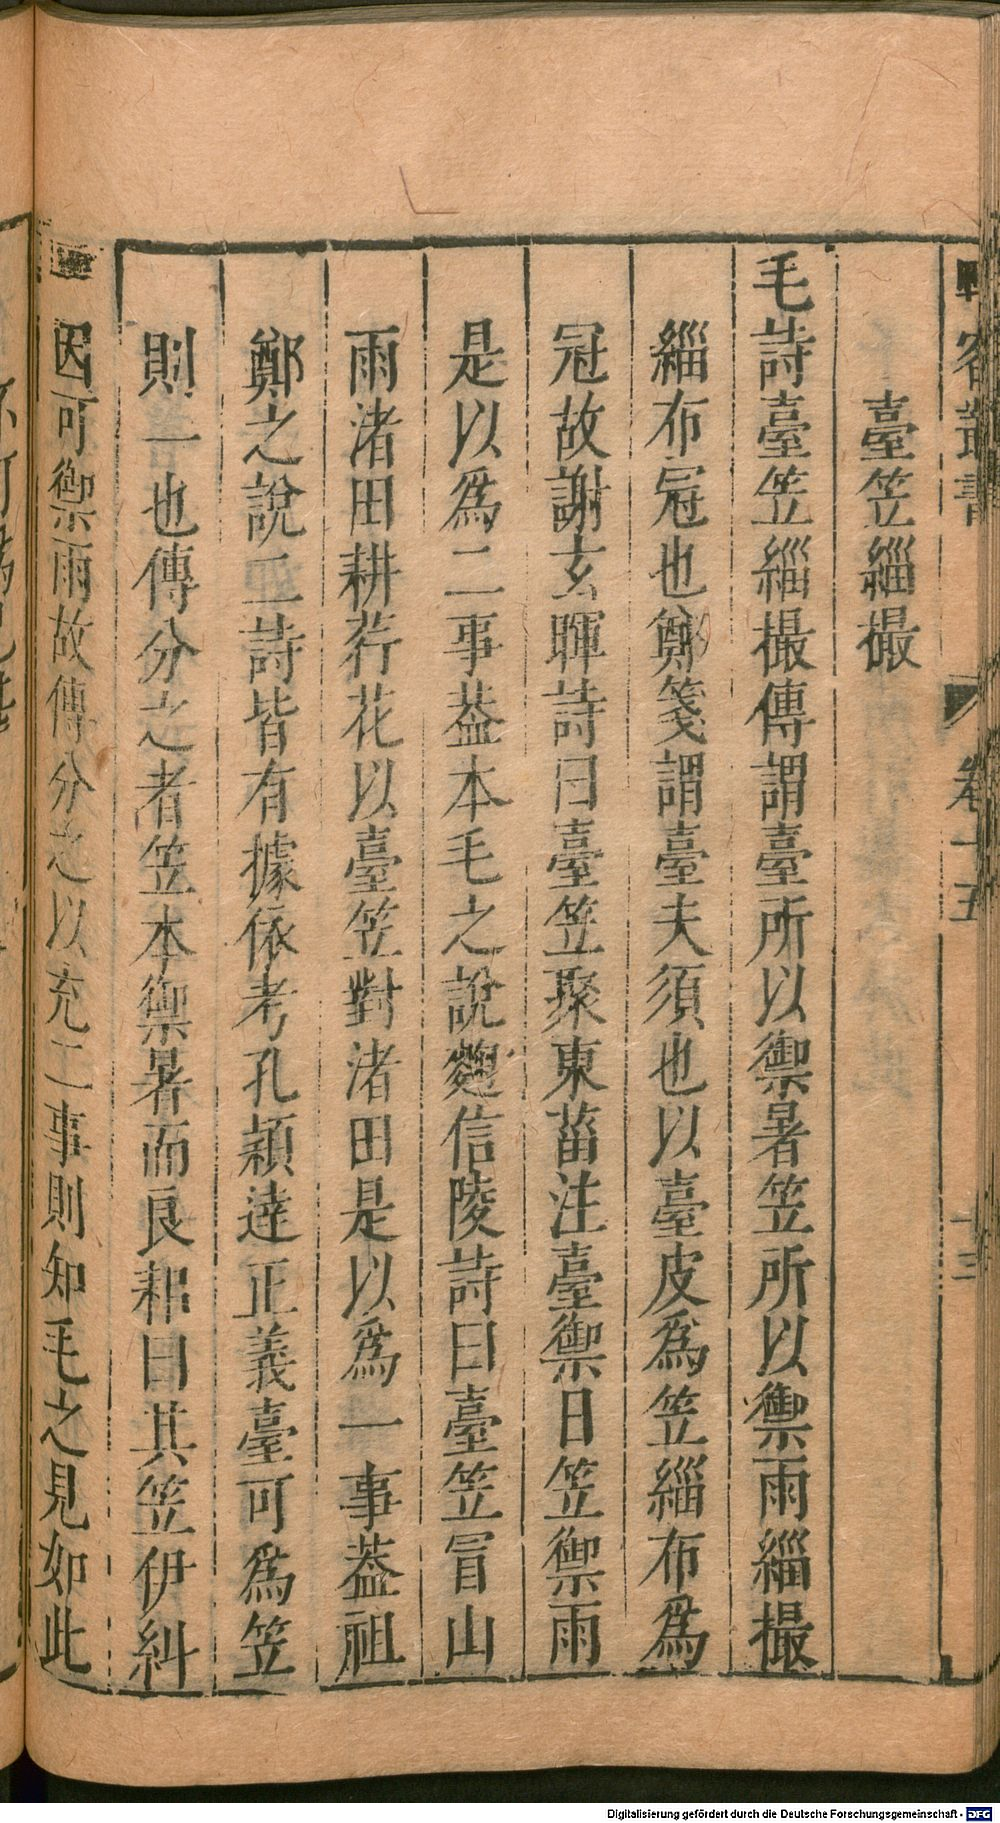 野客叢書 卷十五 十三
臺笠緇撮
毛詩臺笠緇撮傳謂臺所以禦暑笠所以禦雨緇撮
緇布冠也鄭箋謂臺夫須也以臺皮爲笠緇布爲
冠故謝玄暉詩曰臺笠聚東菑注臺禦日笠禦雨
是以爲二事葢本毛之說魏信陵詩曰臺笠冒山
雨渚田耕荇花以臺笠對渚田是以爲一事葢祖
鄭之說二詩皆有據依考孔穎達正義臺可爲笠
則一也傳分之者笠本禦暑而良耜曰其笠伊糾
因可禦雨故傳分之以充二事則知毛之見如此
Digitalisierung gefördert durch die Deutsche Forschungsgemeinschaft - DFG